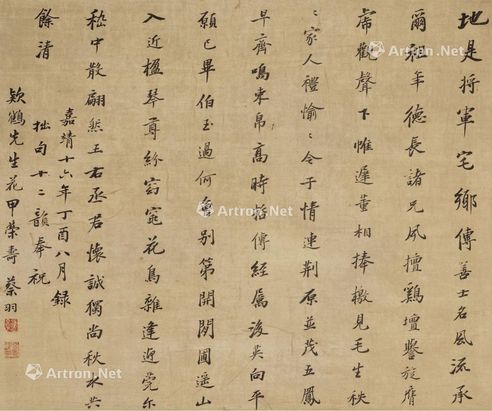 地是将軍宅鄉傳善士名風流承
爾祖年德長諸兄夙擅鷄壇譽旋膺
席觀聲下惟遲董相捧檄見毛生秩
〻家人禮愉〻令子情連荆原並茂五鳳
早齊鳴束帛高時傳經屬後英向平
願已畢伯玉過何曾別第開閒圃遥山
入近楹琴尊紛窈窕花鳥雜逢迎莞尔
嵇中散翩然王右丞君懷誠獨尚秋水共
餘清
嘉靖十六年丁酉八月録
拙句十二韻奉祝
欵鶴先生花甲榮壽 蔡羽
Artron.Net
Artron.Net
Artron.Net
Artron.Net